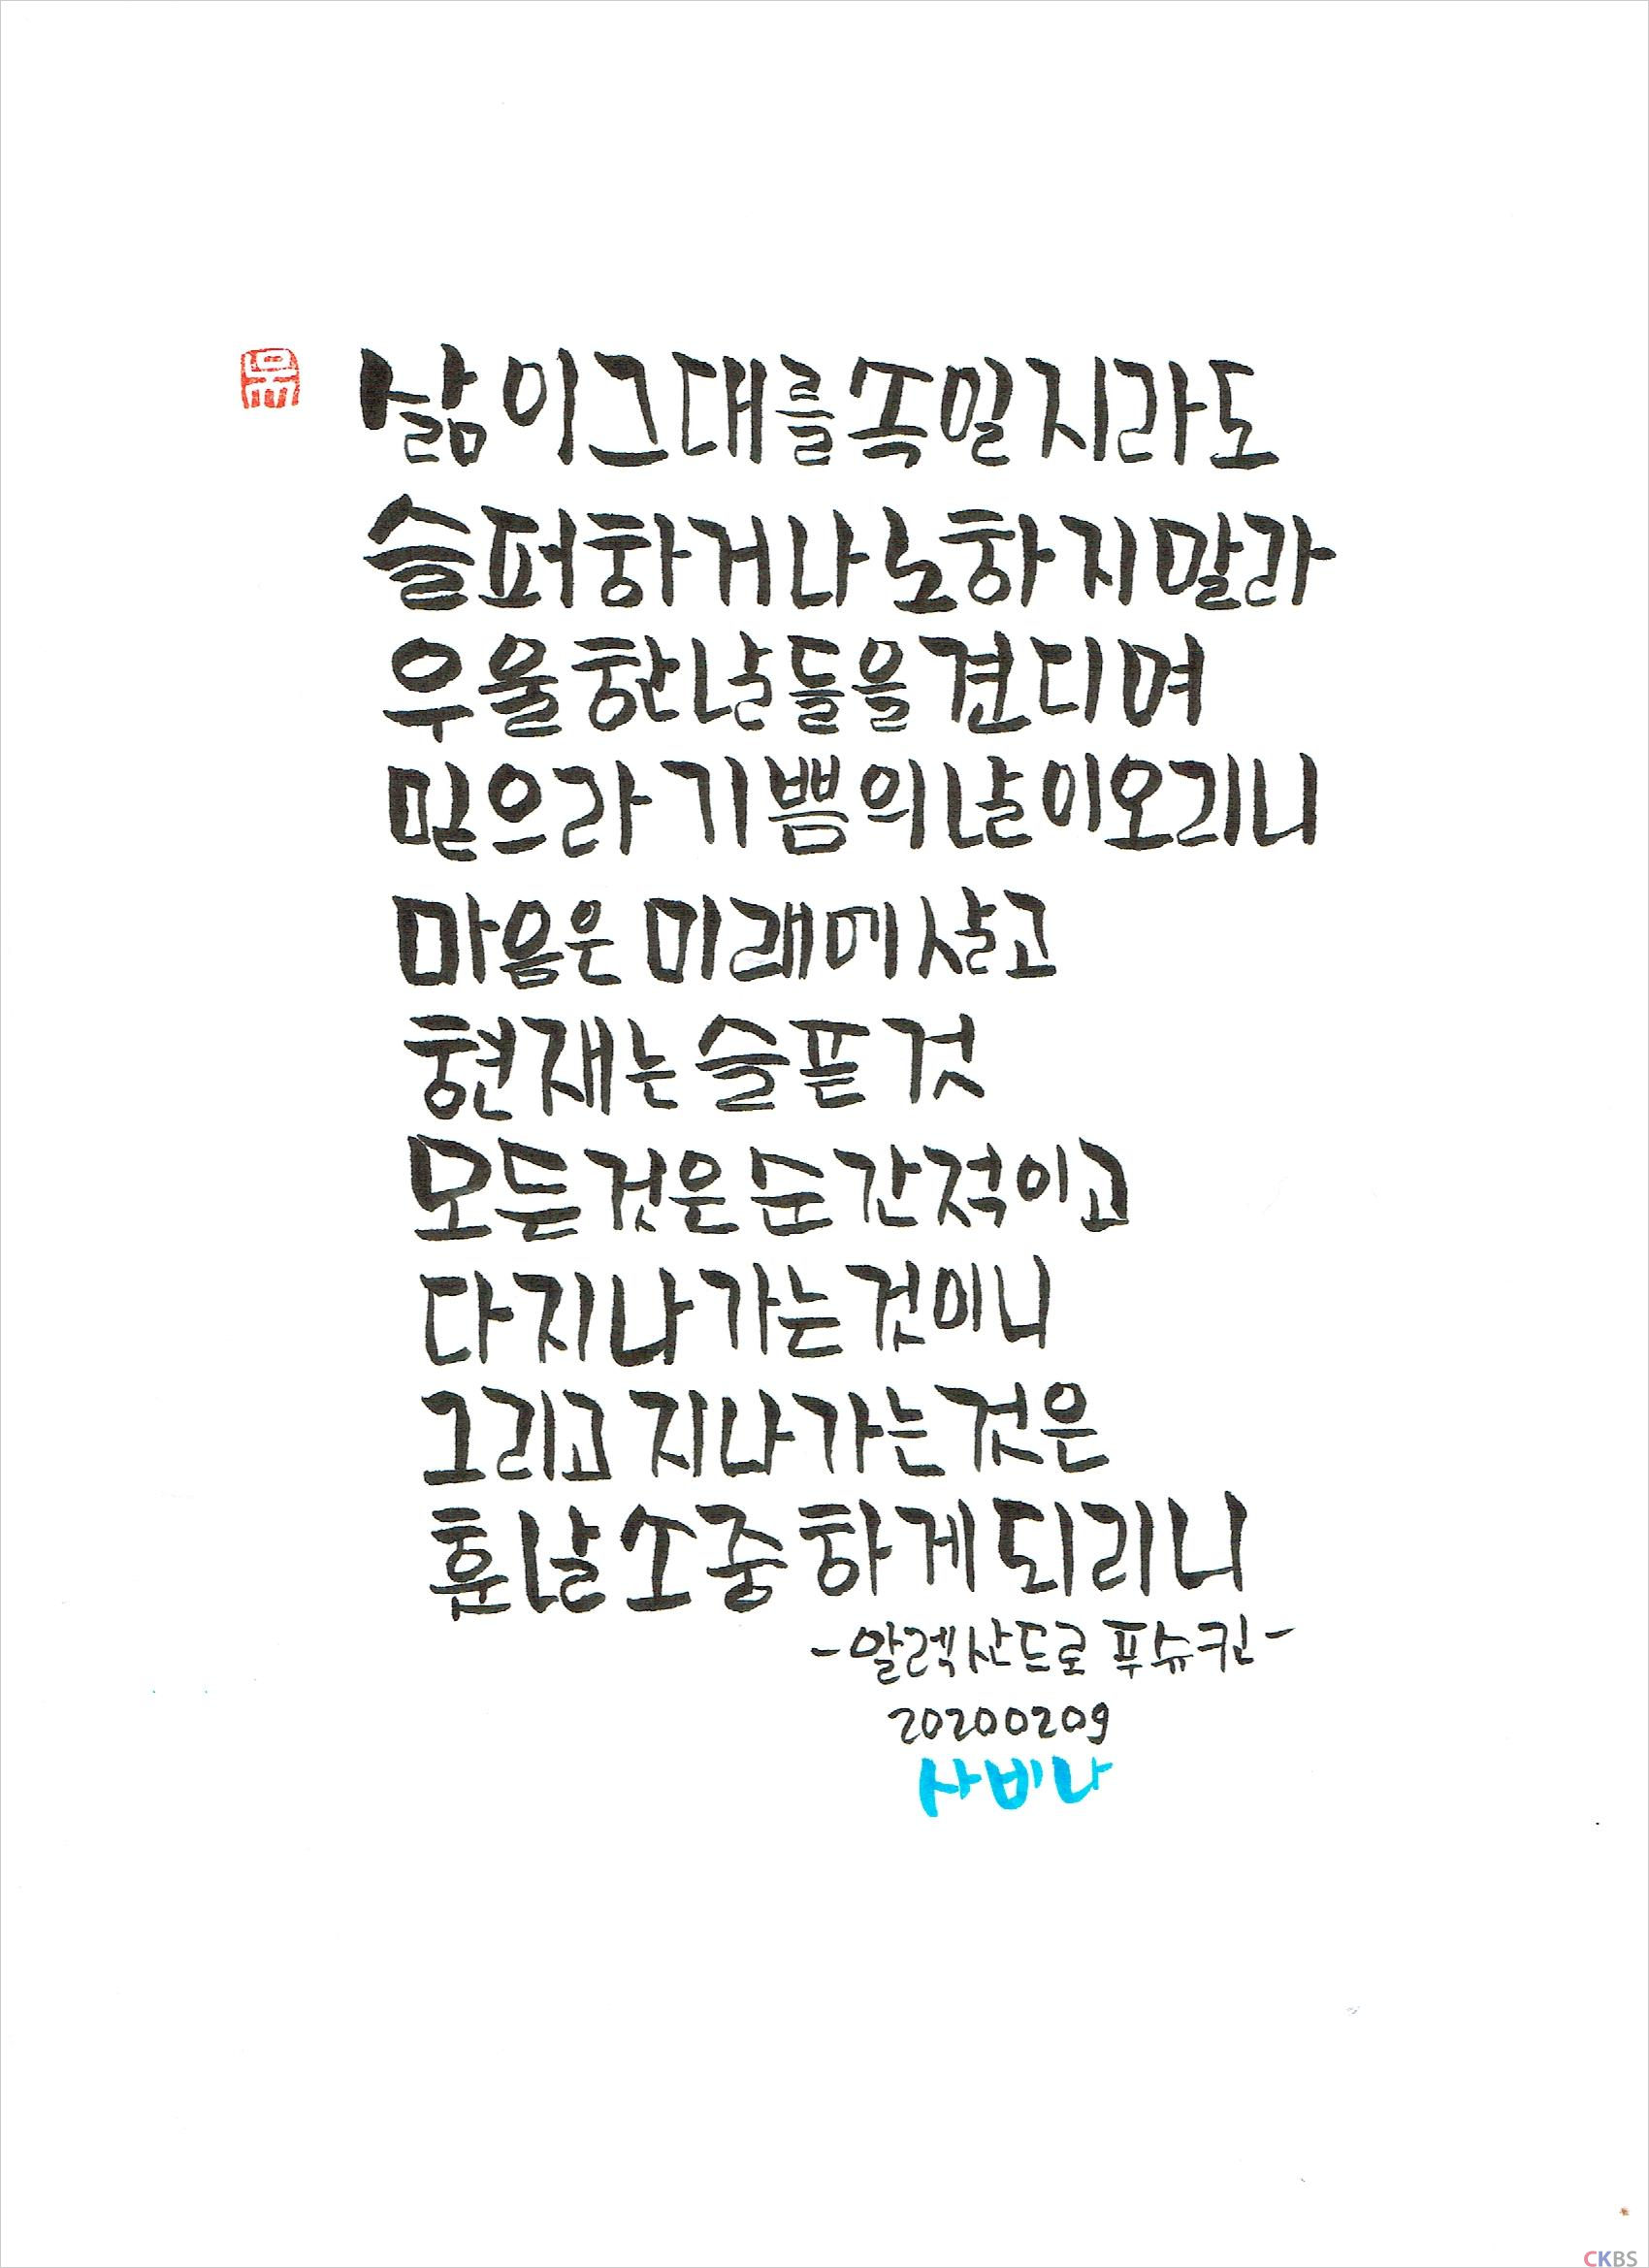 삶이 그대를 속일지라도
슬퍼하거나 노하지 말라
우울한 날들을 견디며
믿으라 기쁨의 날이 오리니
마음은 미래에 살고
현재는 슬픈 것
모든 것은 순간적이고
다 지나가는 것이니
그리고 지나가는 것은
훗날 소중하게 되리니
-알렉산드로 푸슈킨-
20200209
사비나
CKBS